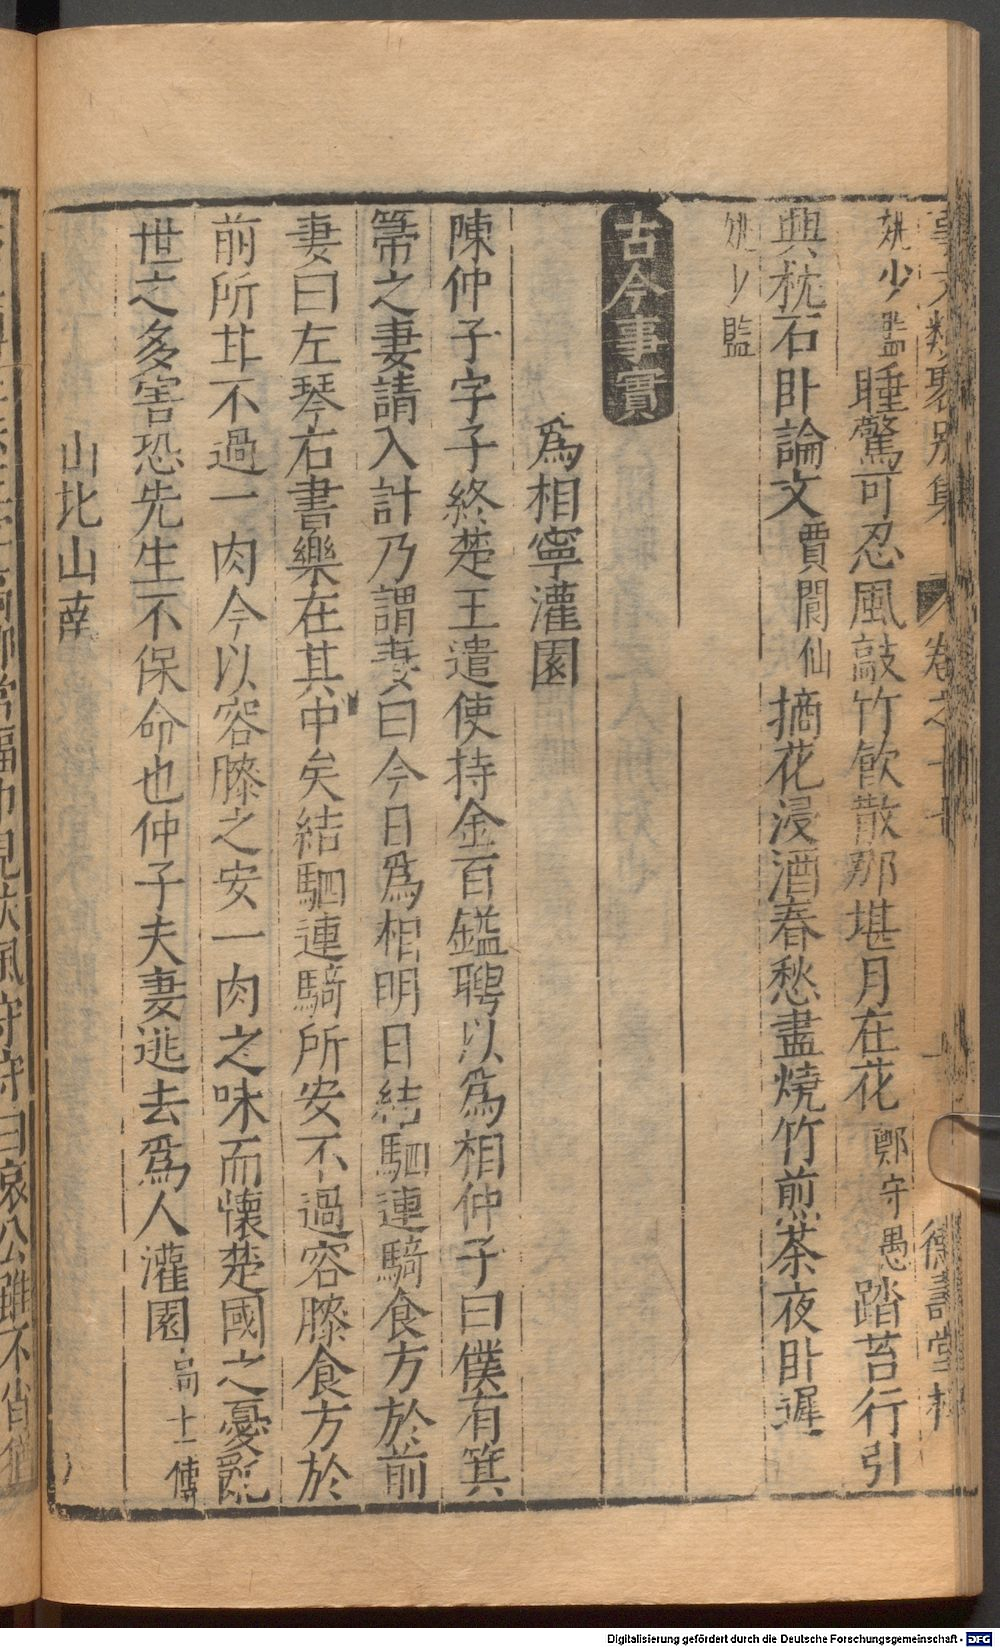 事文類聚別集 卷之十 德壽堂梓
姚少監 睡驚可忍風敲竹飲散那堪月在花 鄭守愚 踏苔行引
興枕石卧論文 賈閬仙 摘花浸酒春愁盡燒竹煎茶夜卧遲
姚少監
古今事實
爲相寧灌園
陳仲子字子終楚王遣使持金百鎰聘以爲相仲子曰僕有箕
箒之妻請入計乃謂妻曰今日爲相明日結駟連騎食方於前
妻曰左琴右書樂在其中矣結駟連騎所安不過容膝食方於
前所甘不過一肉今以容膝之安一肉之味而懷楚國之憂亂
世之多害恐先生不保命也仲子夫妻逃去爲人灌園 高士傳
山北山南
Digitalisierung gefördert durch die Deutsche Forschungsgemeinschaft - DFG